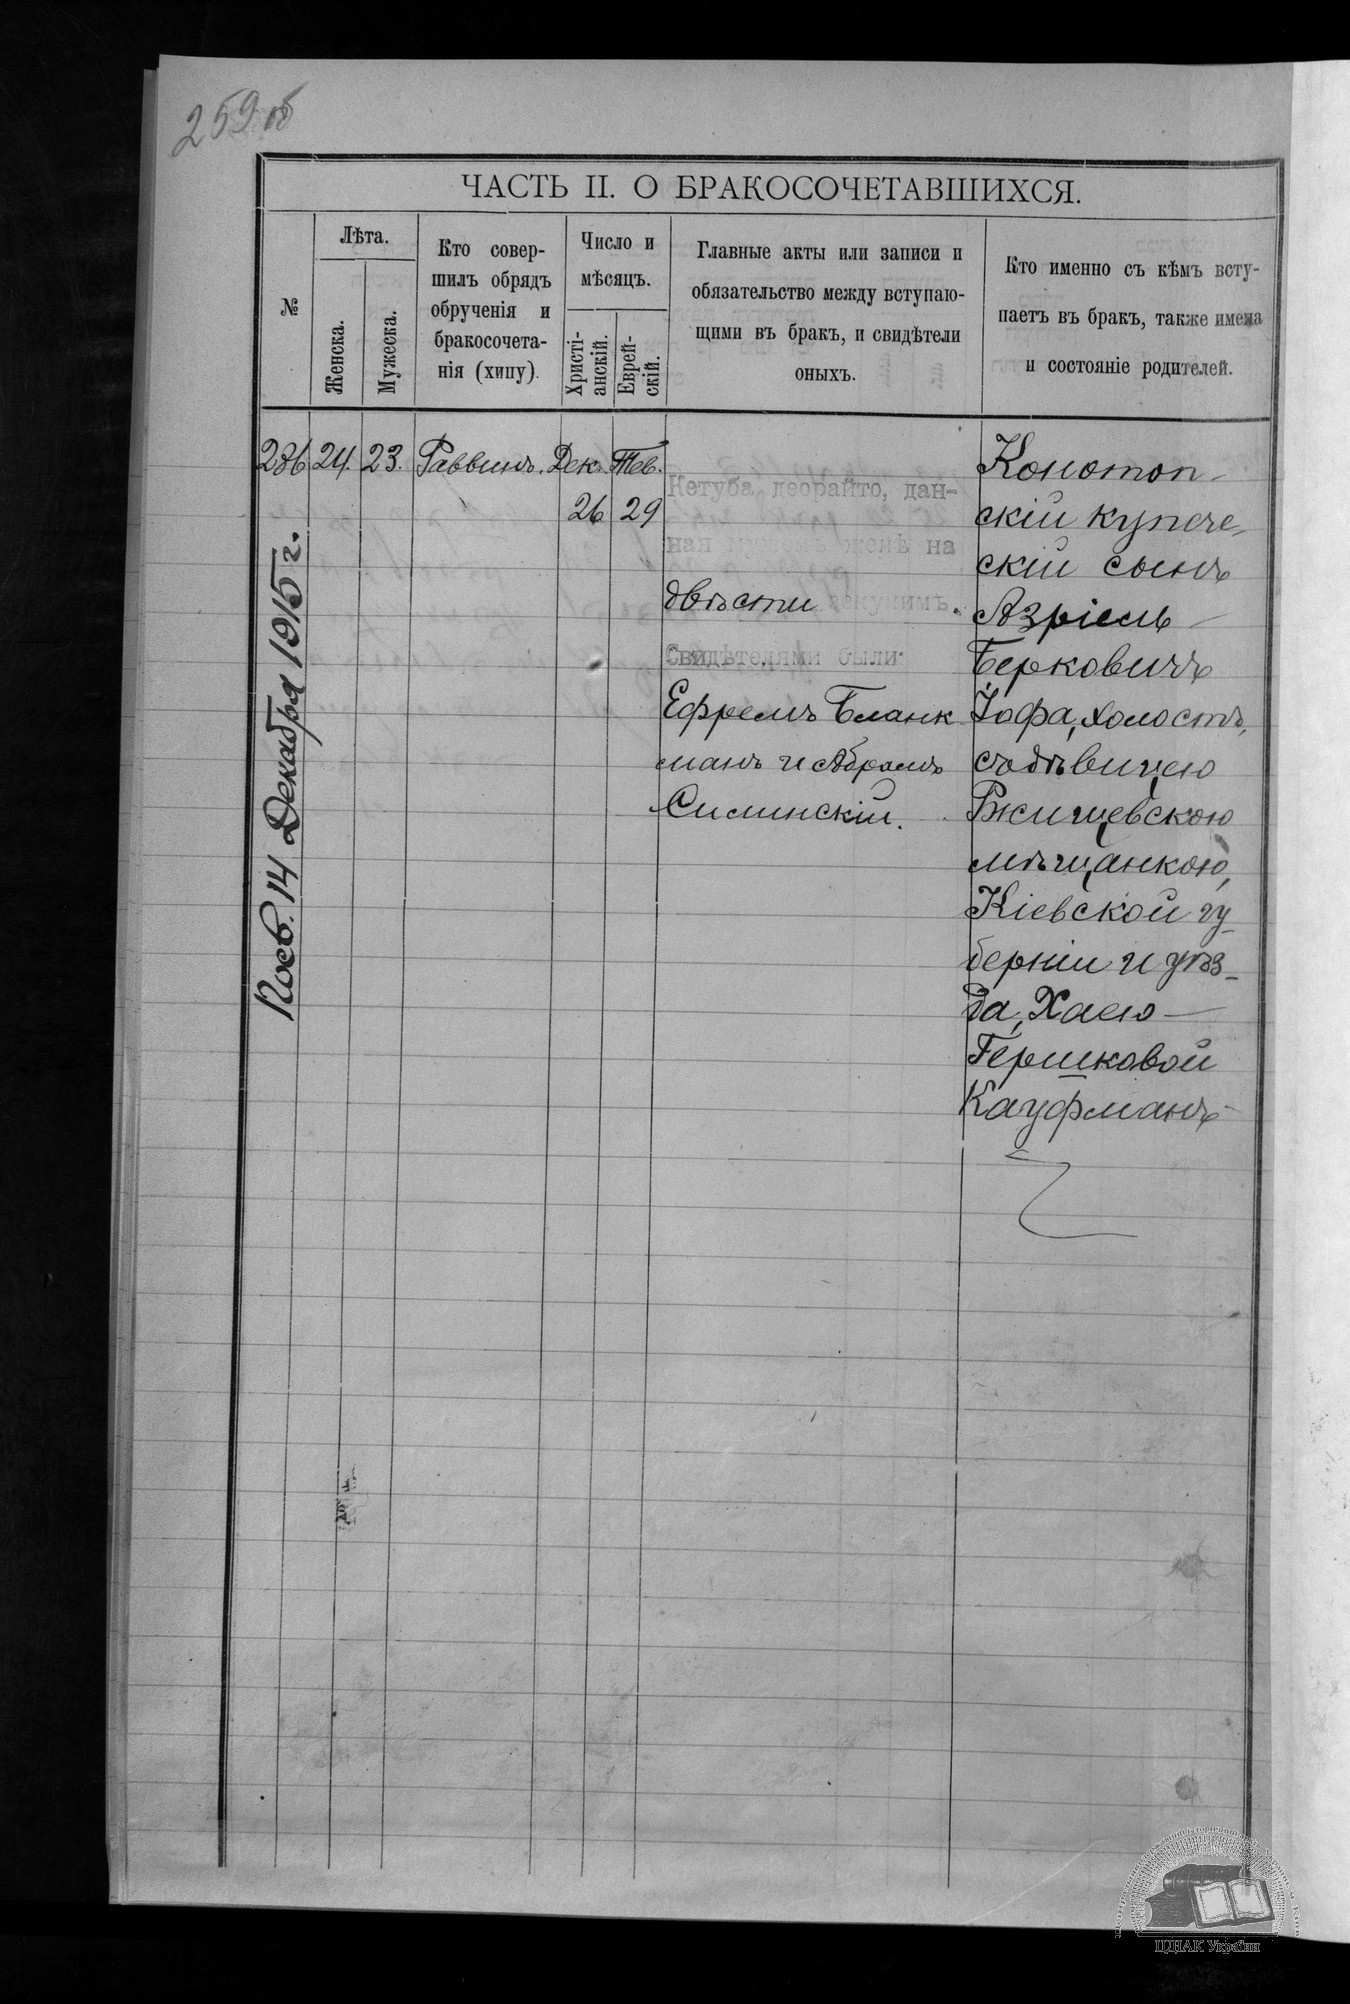 259 об
ЧАСТЬ II. О БРАКОСОЧЕТАВШИХСЯ.
№
Лѣта.
Женска.
Мужеска.
Кто совер-
шилъ обрядъ
обрученія и
бракосочета-
нія (хипу).
Число и
мѣсяцъ.
Христі-
анскій.
Еврей-
скій.
Главные акты или записи и
обязательство между вступаю-
щими въ бракъ, и свидѣтели
оныхъ.
Кто именно съ кѣмъ всту-
паетъ въ бракъ, также имена
и состояніе родителей.
236 24. 23. Раввинъ. Дек. Тев.
26 29
Кетуба деорайто, дан-
ная мужемъ женѣ на
двѣсти зекукимъ.
Свидѣтелями были
Ефремъ Бланк
манъ и Абрамъ
Силинскій.
Конотоп-
скій купече-
скій сынъ
Азріель
Берковичъ
Іофа, холостъ,
съ дѣвицею
Ржищевскою
мѣщанкою,
Кіевской гу-
берніи и уѣз-
да, Хаею
Гершковой
Кауфманъ
Посв. 14 Декабря 1915 г.
ЦДІАК України